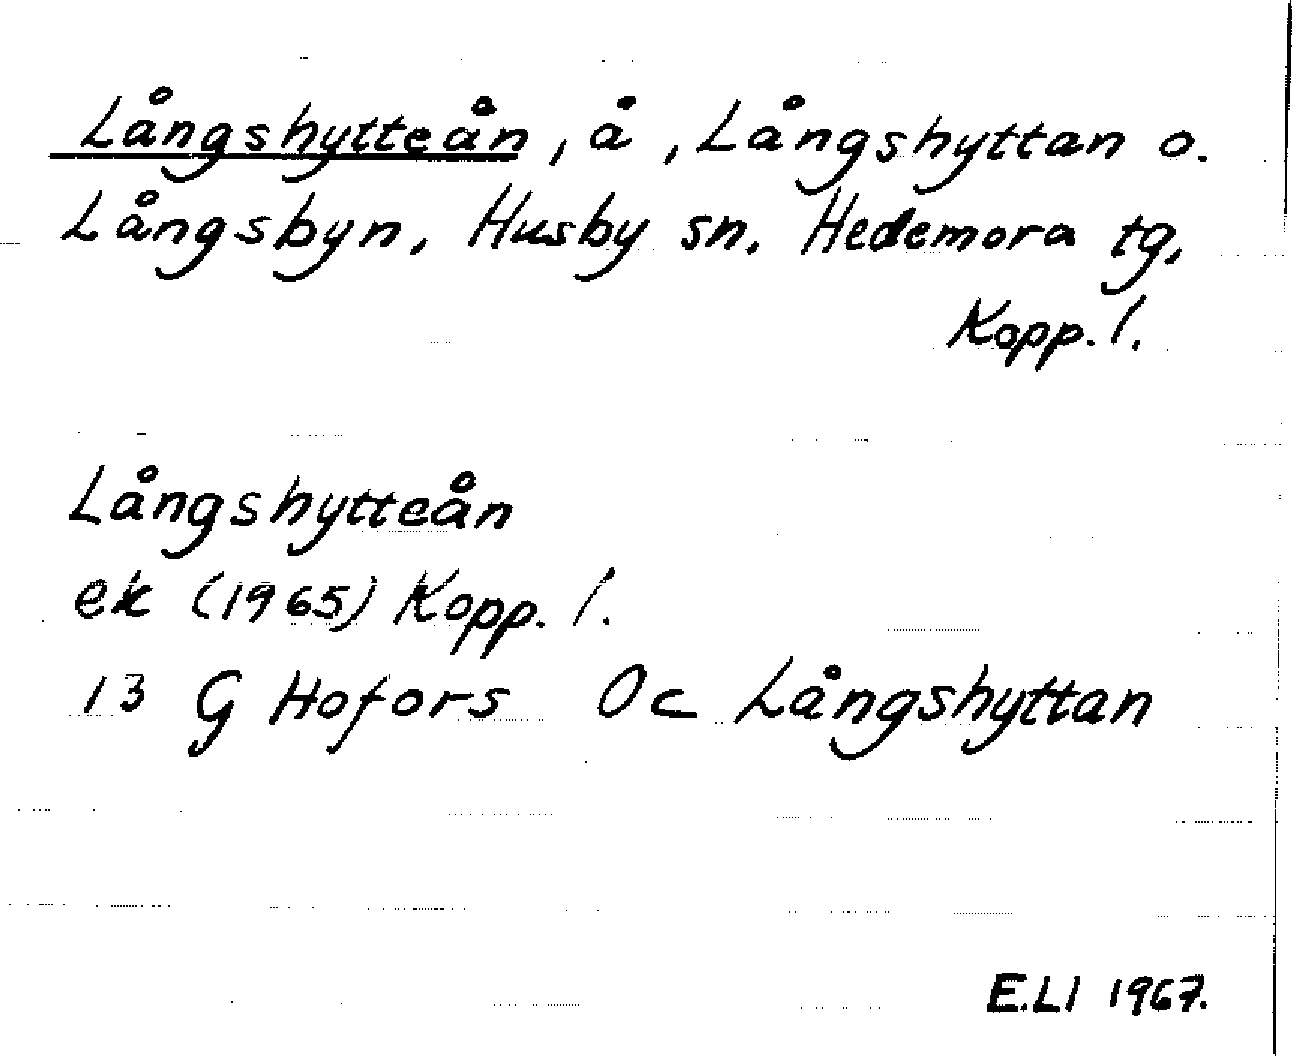 Långshytteån, å, Långshyttan o.
Långsbyn, Husby sn. Hedemora tg,
Kopp. l.
Långshytteån
ek (1965) Kopp. l.
13 G Hofors Oc Långshyttan
E.LI 1967.